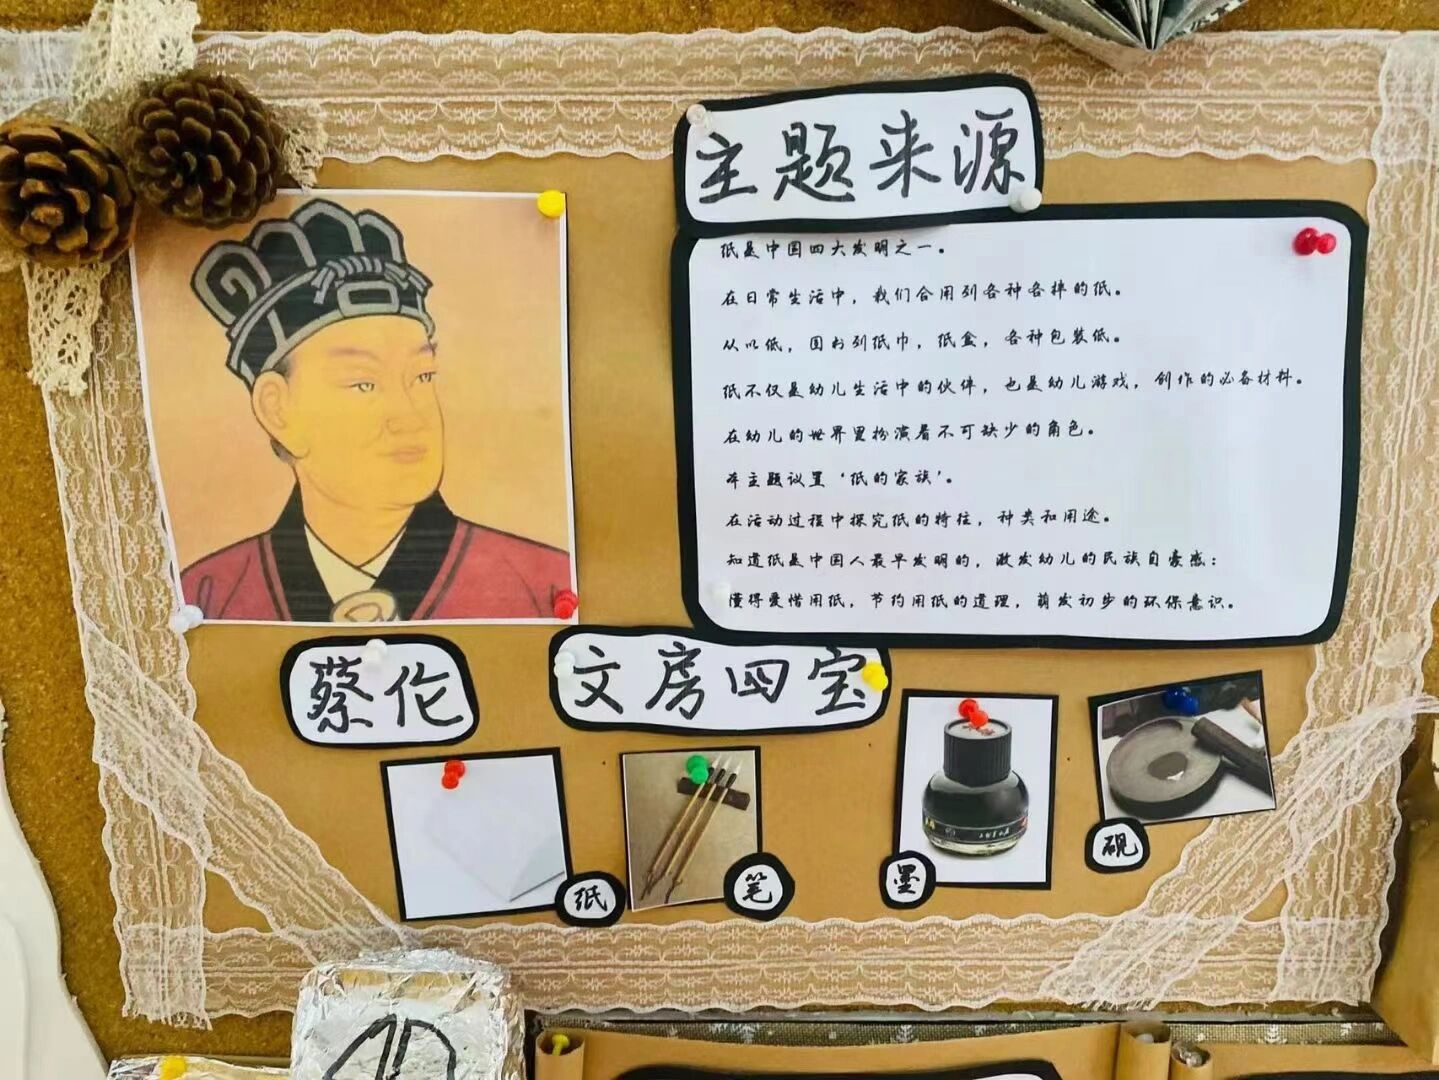 主题来源
纸是中国四大发明之一。
在日常生活中，我们会用到各种各样的纸。
从以纸，图书到纸巾，纸盒，各种包装纸。
纸不仅是幼儿生活中的伙伴，也是幼儿游戏，创作的必备材料。
在幼儿的世界里扮演着不可缺少的角色。
本主题设置‘纸的家族’。
在活动过程中探究纸的特征，种类和用途。
知道纸是中国人最早发明的，激发幼儿的民族自豪感：
懂得爱惜用纸，节约用纸的道理，萌发初步的环保意识。
蔡伦
文房四宝
纸
笔
墨
砚